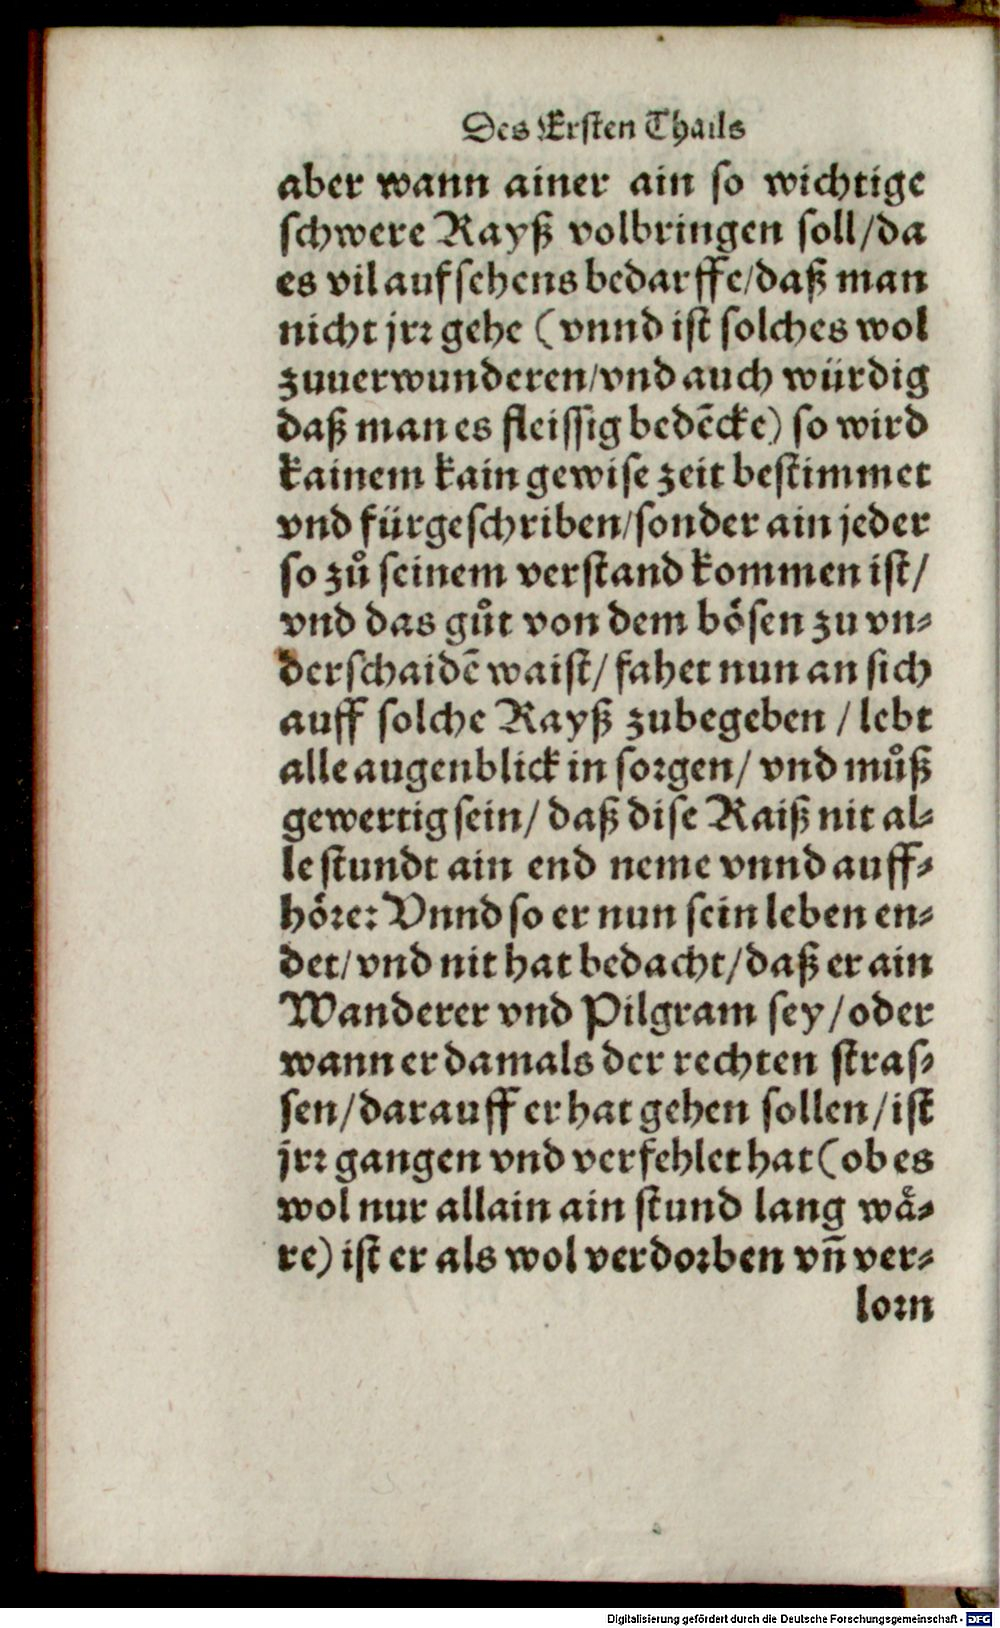 Des Ersten Thails
aber wann ainer ain so wichtige
schwere Rayß volbringen soll/da
es vil aufsehens bedarffe/daß man
nicht jrr gehe (vnnd ist solches wol
zuuerwunderen/vnd auch würdig
daß man es fleissig bedēcke) so wird
kainem kain gewise zeit bestimmet
vnd fürgeschriben/sonder ain jeder
so zů seinem verstand kommen ist/
vnd das gůt von dem bösen zu vn-
derschaidē waist/ fahet nun an sich
auff solche Rayß zubegeben / lebt
alle augenblick in sorgen/ vnd můß
gewertig sein/ daß dise Raiß nit al-
le stundt ain end neme vnnd auff-
höre: Vnnd so er nun sein leben en-
det/ vnd nit hat bedacht/daß er ain
Wanderer vnd Pilgram sey/oder
wann er damals der rechten stras-
sen/darauff er hat gehen sollen/ist
jrr gangen vnd verfehlet hat (ob es
wol nur allain ain stund lang wå-
re) ist er als wol verdorben vn̄ ver-
lorn
Digitalisierung gefördert durch die Deutsche Forschungsgemeinschaft - DFG